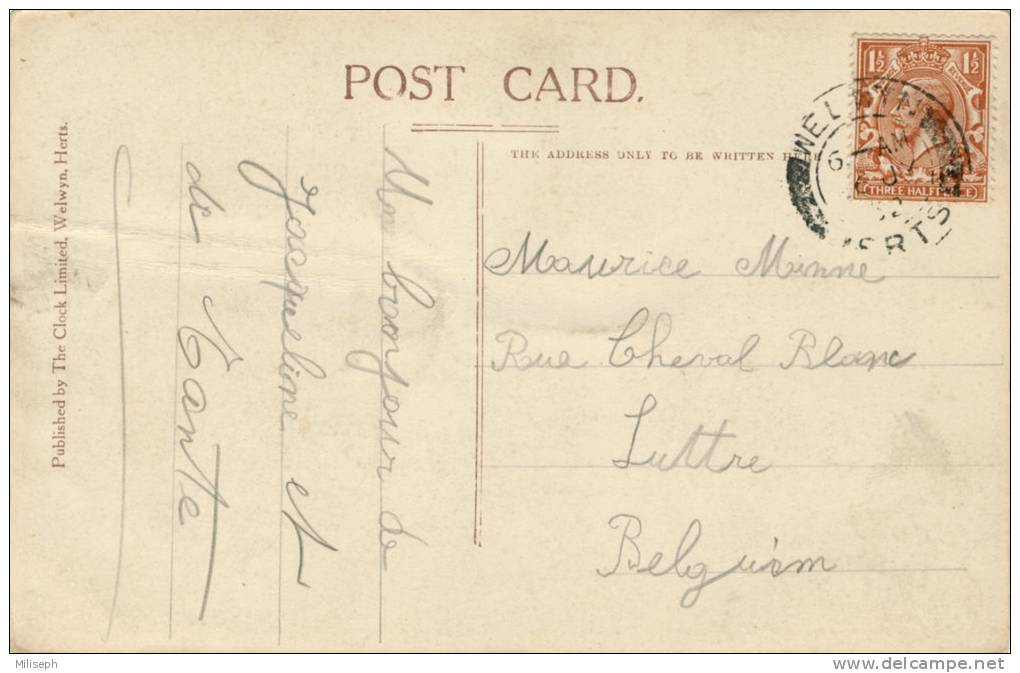 POST CARD.
THE ADDRESS ONLY TO BE WRITTEN HERE
Published by The Clock Limited, Welwyn, Herts.
Un bonjour de
Jacqueline et
de Tante
Maurice Minne
Rue Cheval Blanc
Luttre
Belguim
1½ 1½
THREE HALFPENCE
WELWYN
6 AM
HERTS
Miliseph
delcampe.net